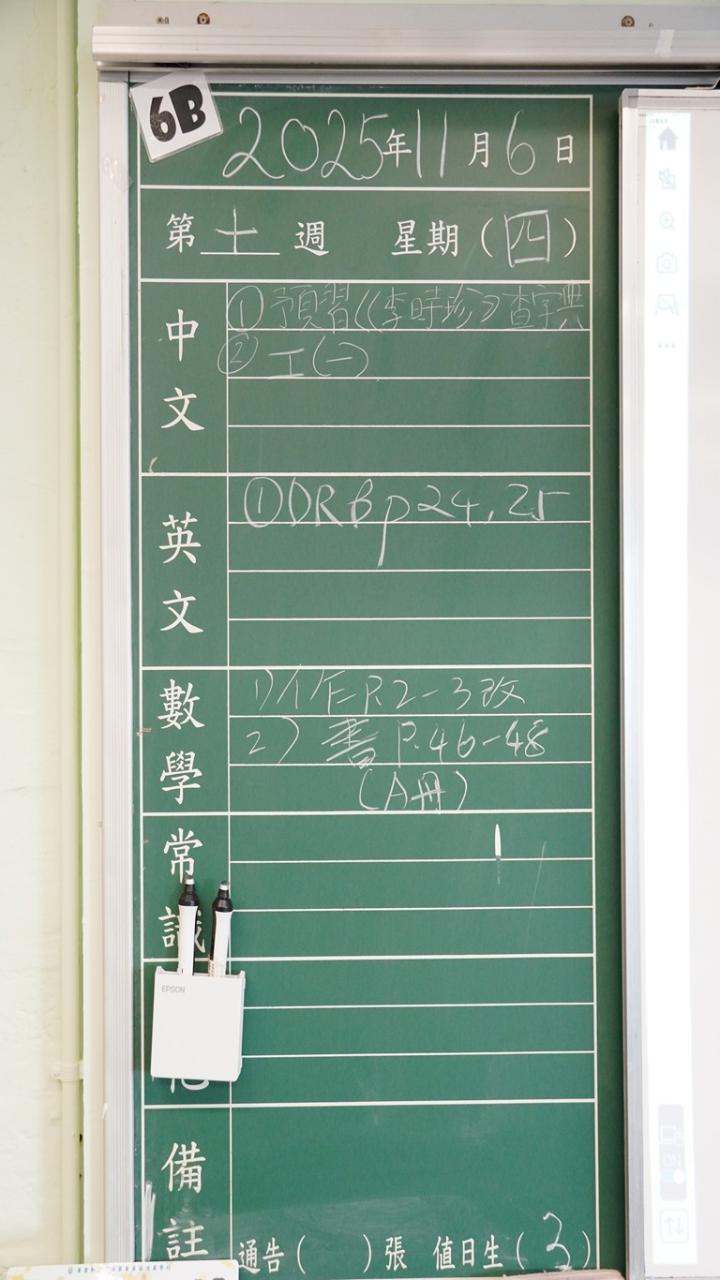 6B
2025年11月6日
第 十 週 星期（四）
中文
①預習《李時珍》查字典
②工(一)
英文
①DRB p24, 25
數學
1)作 P.2-3改
2) 書 P.46-48
(A冊)
常識
EPSON
他
備註
通告（ ）張 值日生（3）